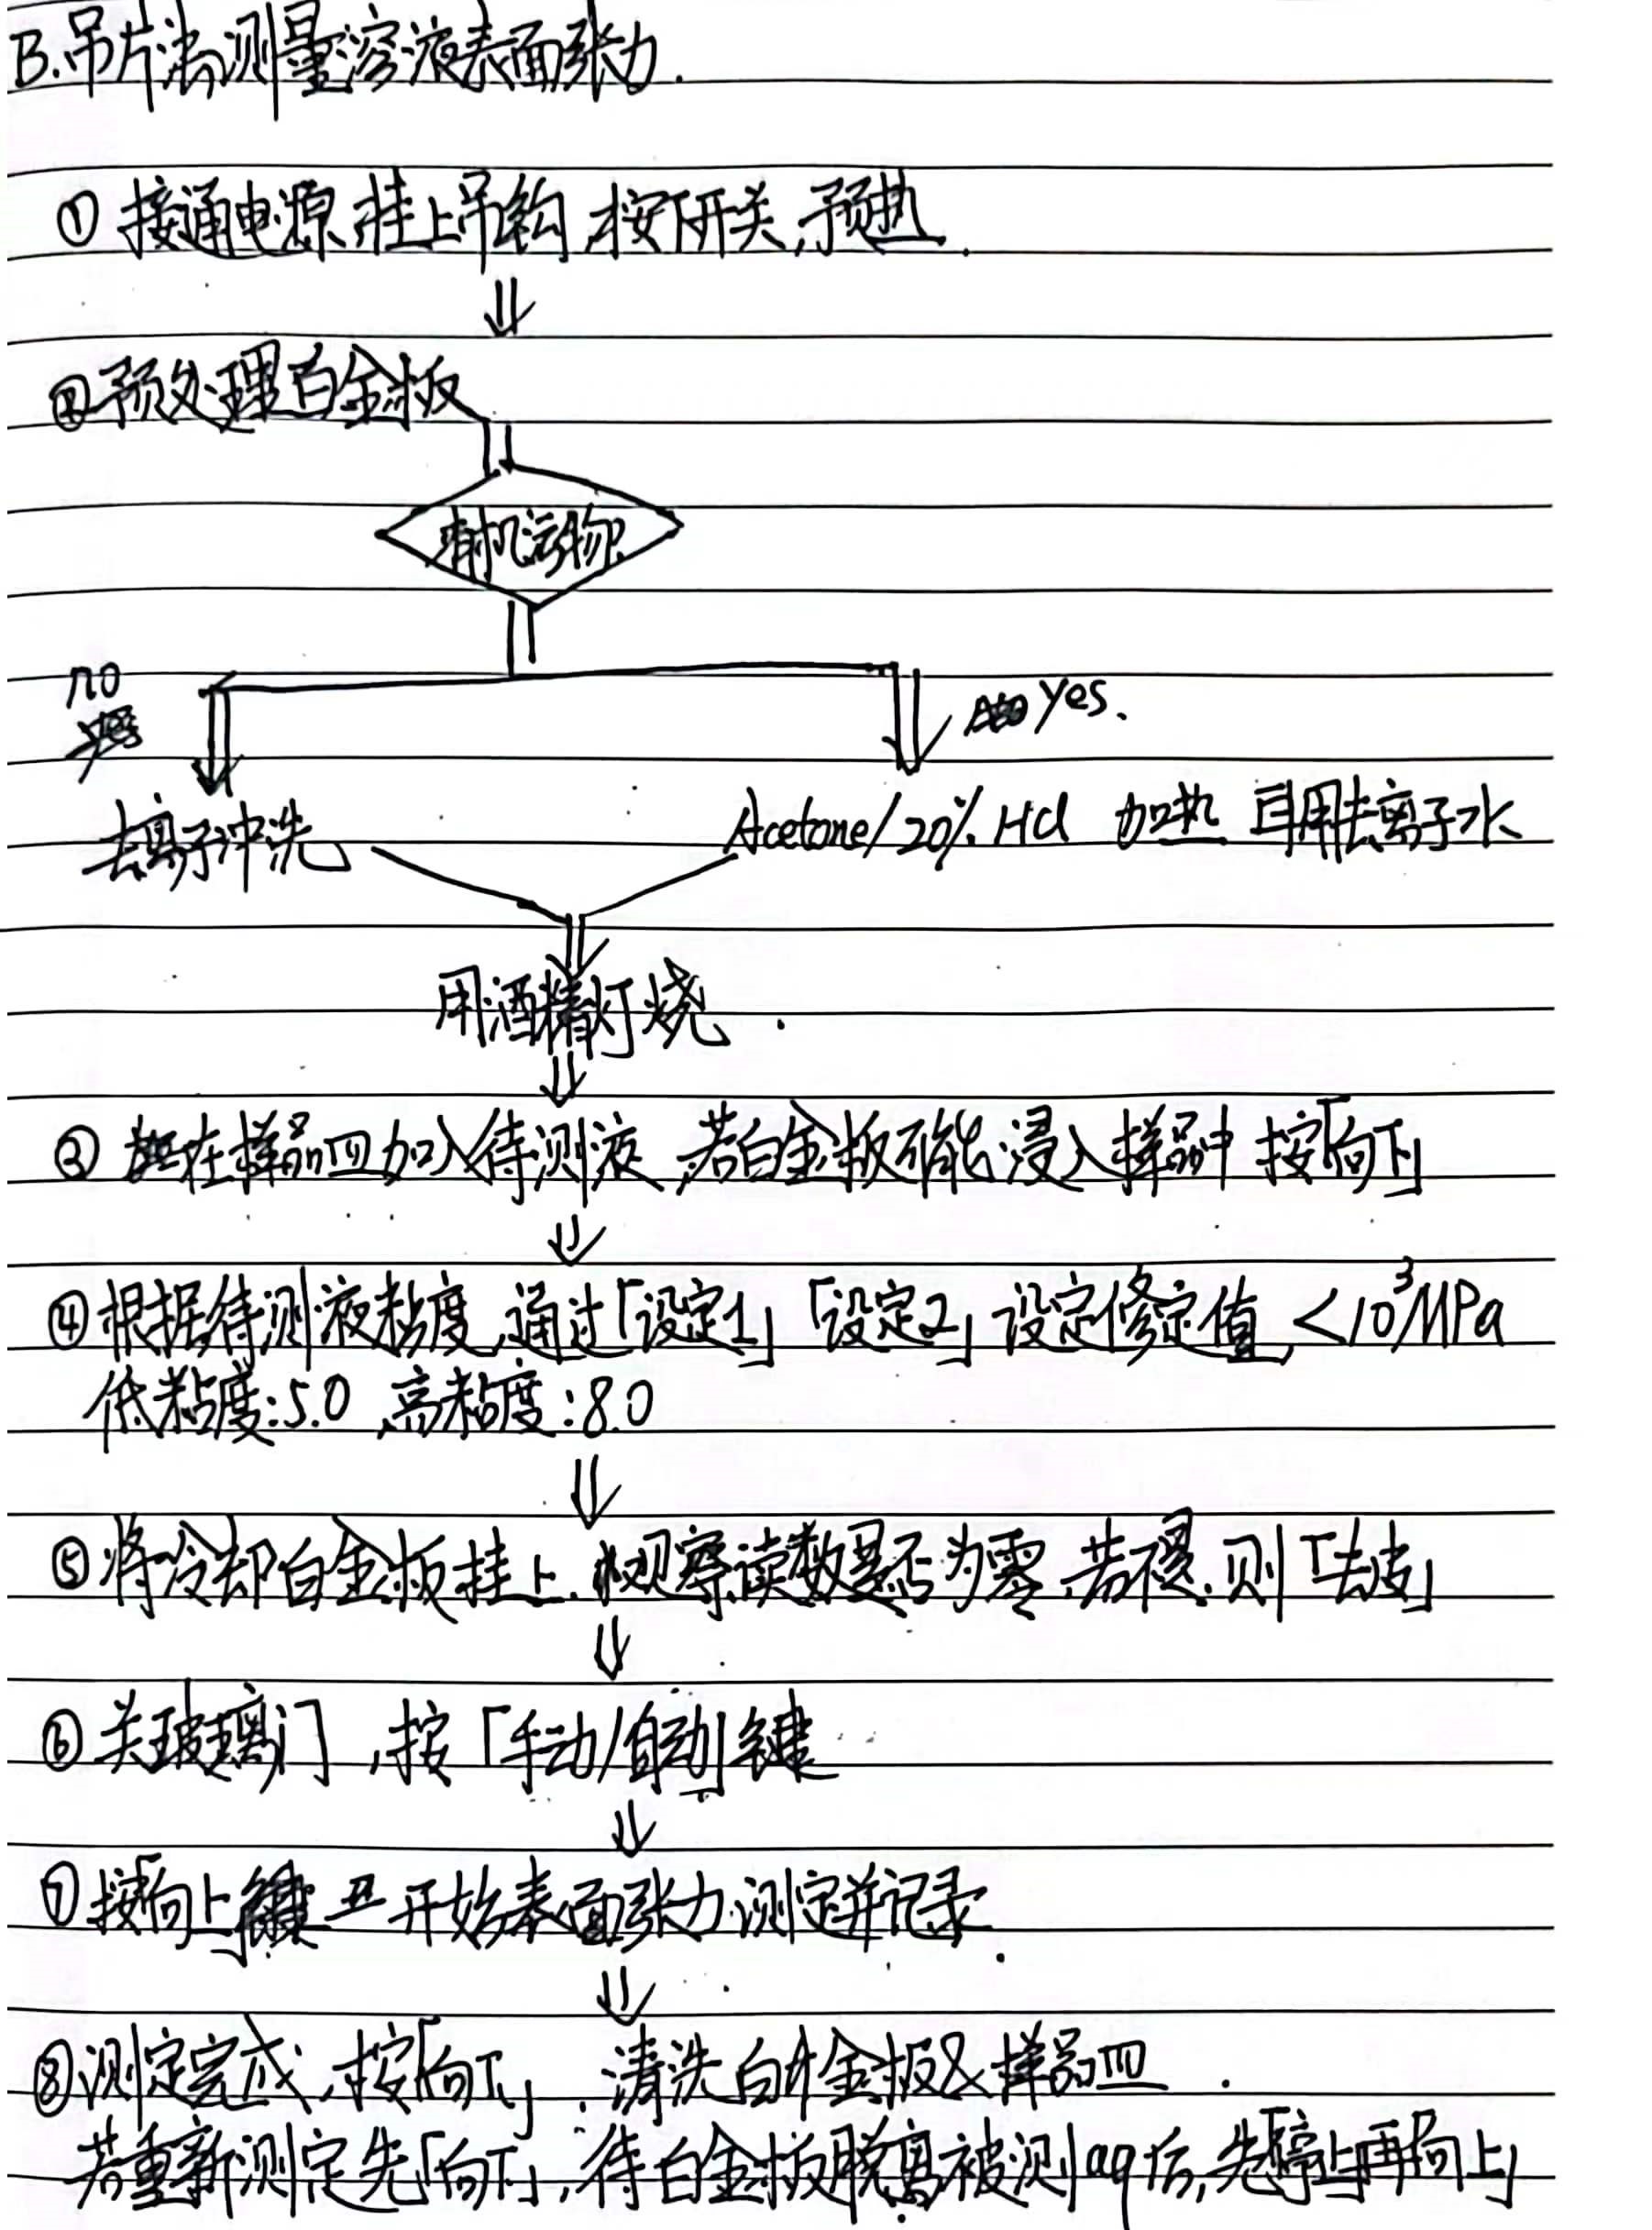 B.吊片法测量溶液表面张力.
① 接通电源,挂上吊钩,按「开关」,预热.
②预处理白金板
有机污物?
no
yes.
去离子冲洗
Acetone/20% HCl 加热 再用去离子水
用酒精灯烧.
③ 在样品皿加入待测液,若白金板可能浸入样品中 按「向下」
④根据待测液粘度,通过「设定1」「设定2」设定修定值,<10³MPa
低粘度:5.0,高粘度:8.0
⑤将冷却白金板挂上.观察读数是否为零,若不是,则「去皮」
⑥关玻璃门,按「手动/自动」键
⑦按「向上」键 开始表面张力测定并记录.
⑧测定完成,按「向下」,清洗白金板&样品皿.
若重新测定先「向下」,待白金板脱离被测aq后,先「停止」再「向上」